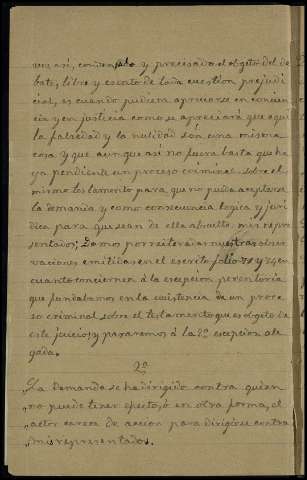 vez así, condensado y precisado el objeto del de
bate, libre y exento de toda cuestion prejudi
cial, es cuando pudiera apreciarse en concien
cia y en justicia como se apreciará que aqui
la falsedad y la nulidad son una misma
cosa y que aunque así no fuera basta que ha
ya pendiente un proceso criminal sobre el
mismo testamento para que no pueda aceptarse
la demanda y como consecuencia logica y juri
dica para que sean de ella absueltos mis repre
sentados; Damos por reiteradas nuestras obser
vaciones emitidas en el escrito folio 70 y 74 en
cuanto conciernen á la escepcion perentoria
que fundabamos en la existencia de un proce
so criminal sobre el testamento que es objeto de
este juicio; y pasaremos á la 2ª escepcion ale
gada.
2ª
La demanda se ha dirigido contra quien
no puede tener efecto, ó en otra forma, el
actor carece de accion para dirigirse contra
mis representados.